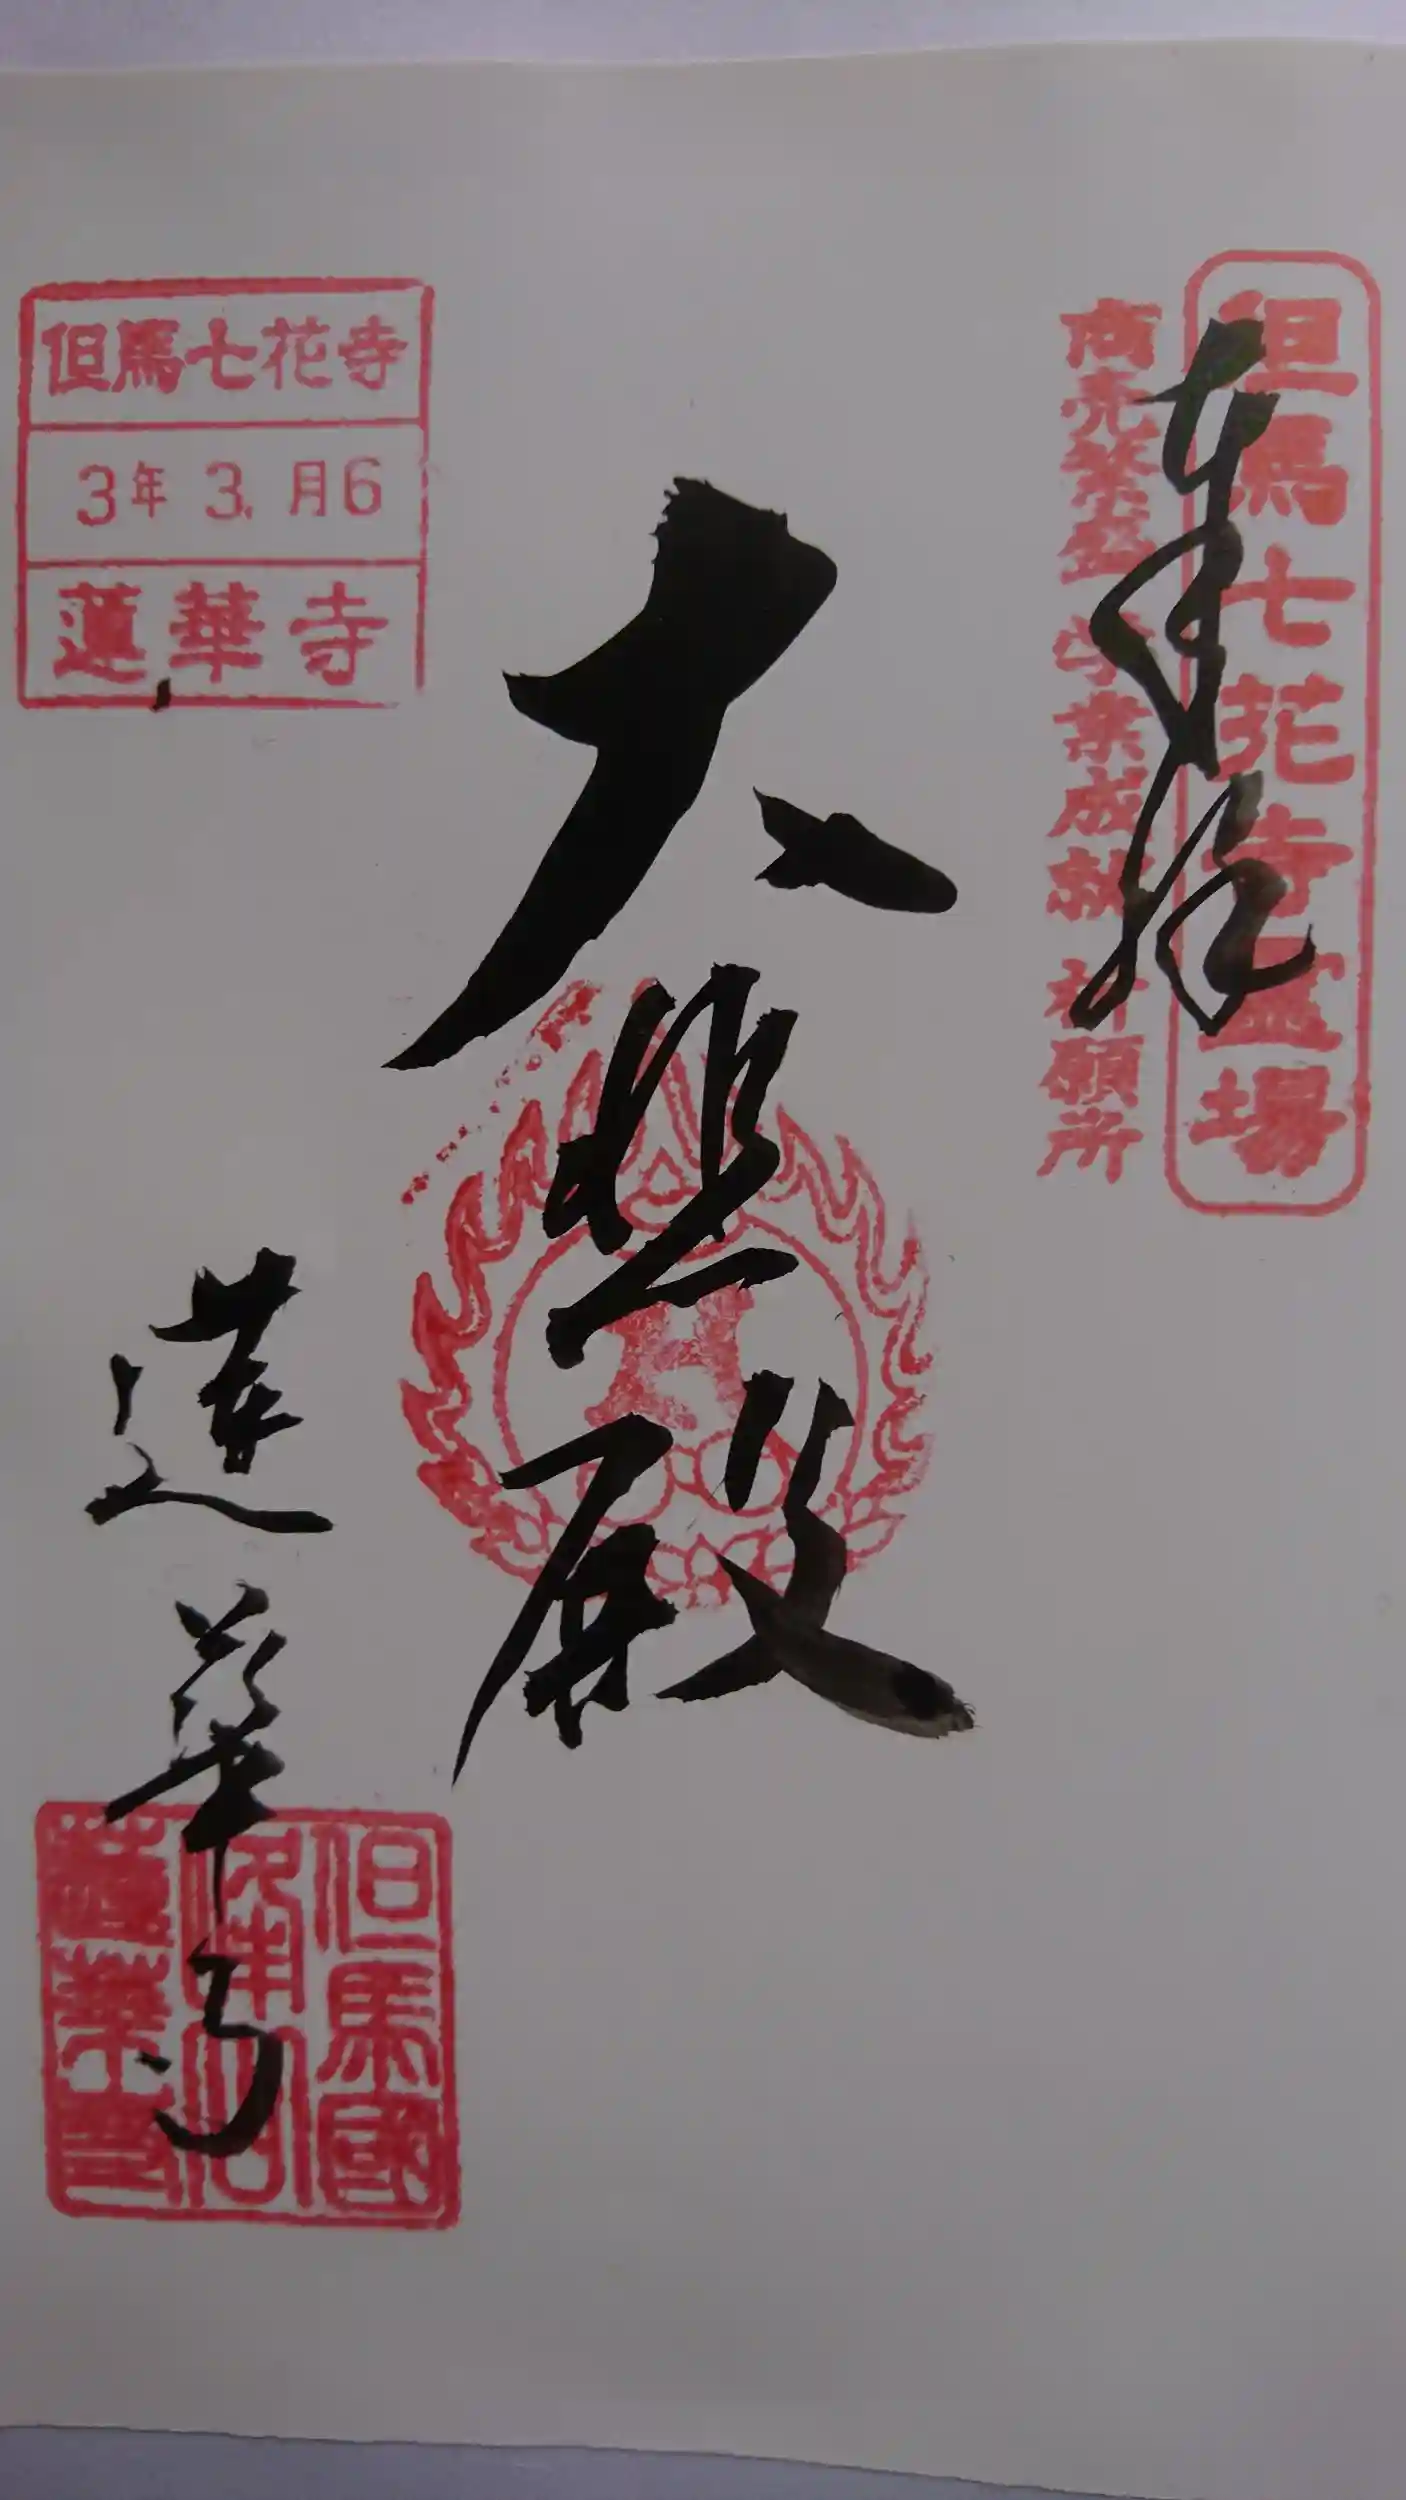 但馬七花寺霊場
商売繁盛 学業成就 祈願所
奉拝
大悲殿
但馬七花寺
3年3.月6
蓮華寺
蓮華寺
但馬國
蓮華寺